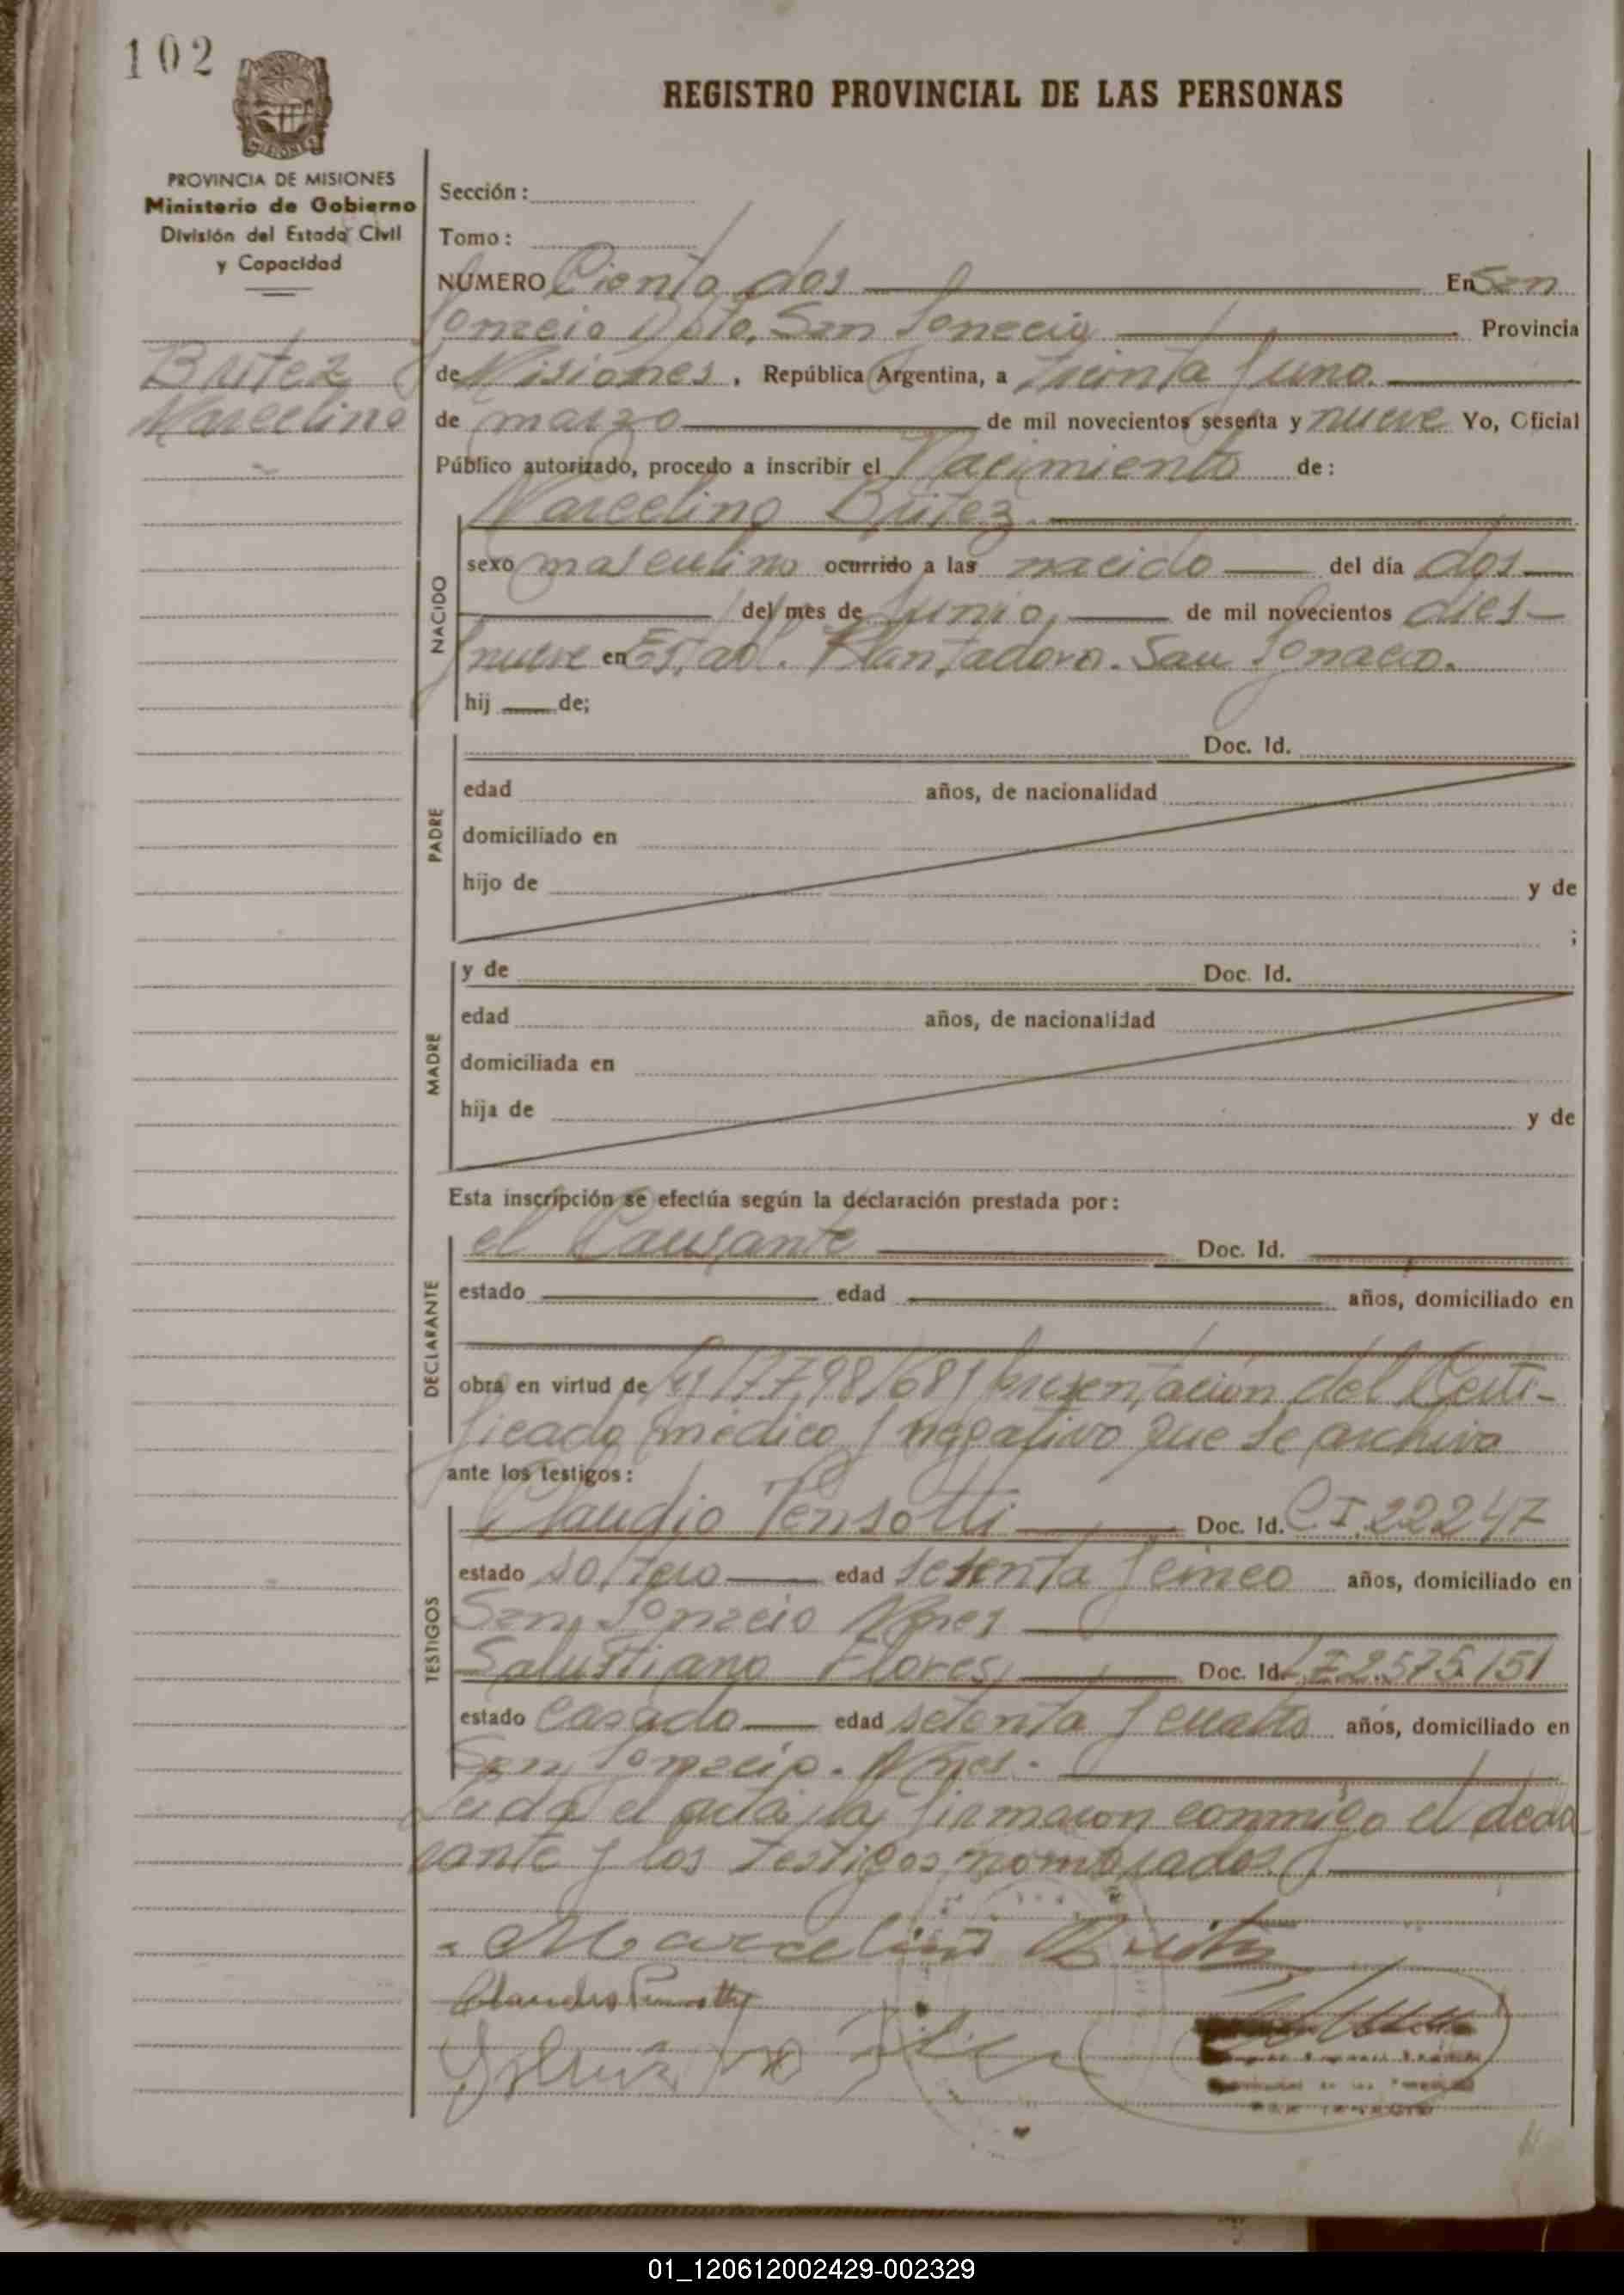 102
REGISTRO PROVINCIAL DE LAS PERSONAS
MISIONES
PROVINCIA DE MISIONES
Ministerio de Gobierno
División del Estado Civil
y Capacidad
Britez
Marcelino
Sección:
Tomo:
NUMERO Ciento dos En San
Ignacio Dpto. San Ignacio Provincia
de Misiones, República Argentina, a treinta y uno
de marzo de mil novecientos sesenta y nueve Yo, Oficial
Público autorizado, procedo a inscribir el Nacimiento de:
Marcelino Britez
NACIDO
sexo masculino ocurrido a las nacido del día dos
del mes de Junio, de mil novecientos dies-
y nueve en Estab. Plantadora. San Ignacio.
hij de;
PADRE
Doc. Id.
edad años, de nacionalidad
domiciliado en
hijo de y de
;
MADRE
y de Doc. Id.
edad años, de nacionalidad
domiciliada en
hija de y de
Esta inscripción se efectúa según la declaración prestada por:
DECLARANTE
el Causante Doc. Id.
estado edad años, domiciliado en
obra en virtud de Ley 17798/68 y presentación del Certi-
ficado médico y negativo que se archiva
ante los testigos:
TESTIGOS
Claudio Pensotti Doc. Id. CI. 22247
estado soltero edad setenta y cinco años, domiciliado en
San Ignacio Mnes
Salustiano Flores, Doc. Id. LE 2.575.151
estado casado edad setenta y cuatro años, domiciliado en
San Ignacio. Mnes.
Leida el acta, la firmaron conmigo el decla
rante y los testigos nombrados.
Marcelino Britez
Claudio Pensotti
SAN IGNACIO
01_120612002429-002329